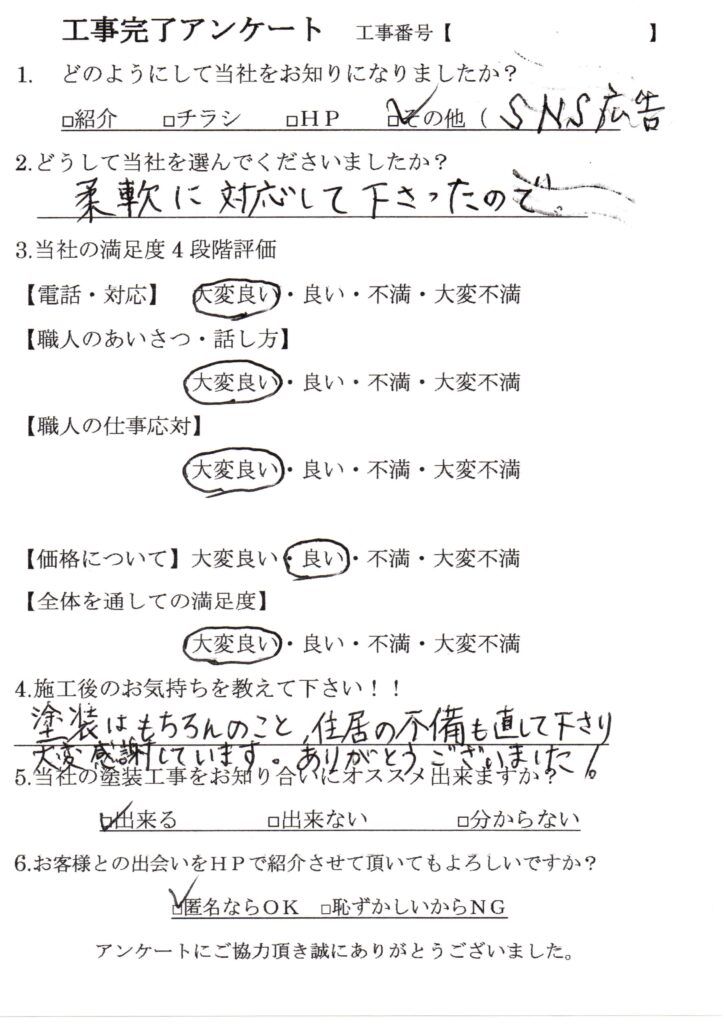 工事完了アンケート 工事番号【 】
1. どのようにして当社をお知りになりましたか？
□紹介 □チラシ □ＨＰ ☑その他（ SNS広告
2.どうして当社を選んでくださいましたか？
柔軟に対応して下さったので。
3.当社の満足度４段階評価
【電話・対応】 大変良い・良い・不満・大変不満
【職人のあいさつ・話し方】
大変良い・良い・不満・大変不満
【職人の仕事応対】
大変良い・良い・不満・大変不満
【価格について】大変良い・良い・不満・大変不満
【全体を通しての満足度】
大変良い・良い・不満・大変不満
4.施工後のお気持ちを教えて下さい！！
塗装はもちろんのこと、住居の不備も直して下さり
大変感謝しています。ありがとうございました！
5.当社の塗装工事をお知り合いにオススメ出来ますか？
☑出来る □出来ない □分からない
6.お客様との出会いをＨＰで紹介させて頂いてもよろしいですか？
☑匿名ならＯＫ □恥ずかしいからＮＧ
アンケートにご協力頂き誠にありがとうございました。